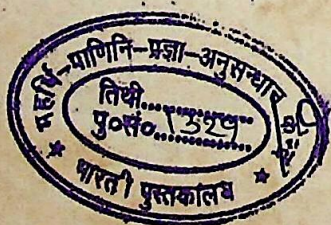 महर्षि-पाणिनि-प्रज्ञा-अनुसन्धान
तिथी..................
पु०सं० 1329
भारती पुस्तकालय